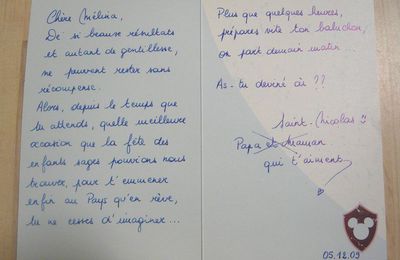 Chère Mélina,
De si beaux résultats
et autant de gentillesse,
ne peuvent rester sans
récompense.
Alors, depuis le temps que
tu attends, quelle meilleure
occasion que la fête des
enfants sages pouvions nous
trouver, pour t'emmener
enfin au Pays qu'en rêve,
tu ne cesses d'imaginer...
Plus que quelques heures,
prépares vite ton baluchon,
on part demain matin...
As-tu deviné où ??
Saint-Nicolas
Papa et Maman
qui t'aiment
05.12.09